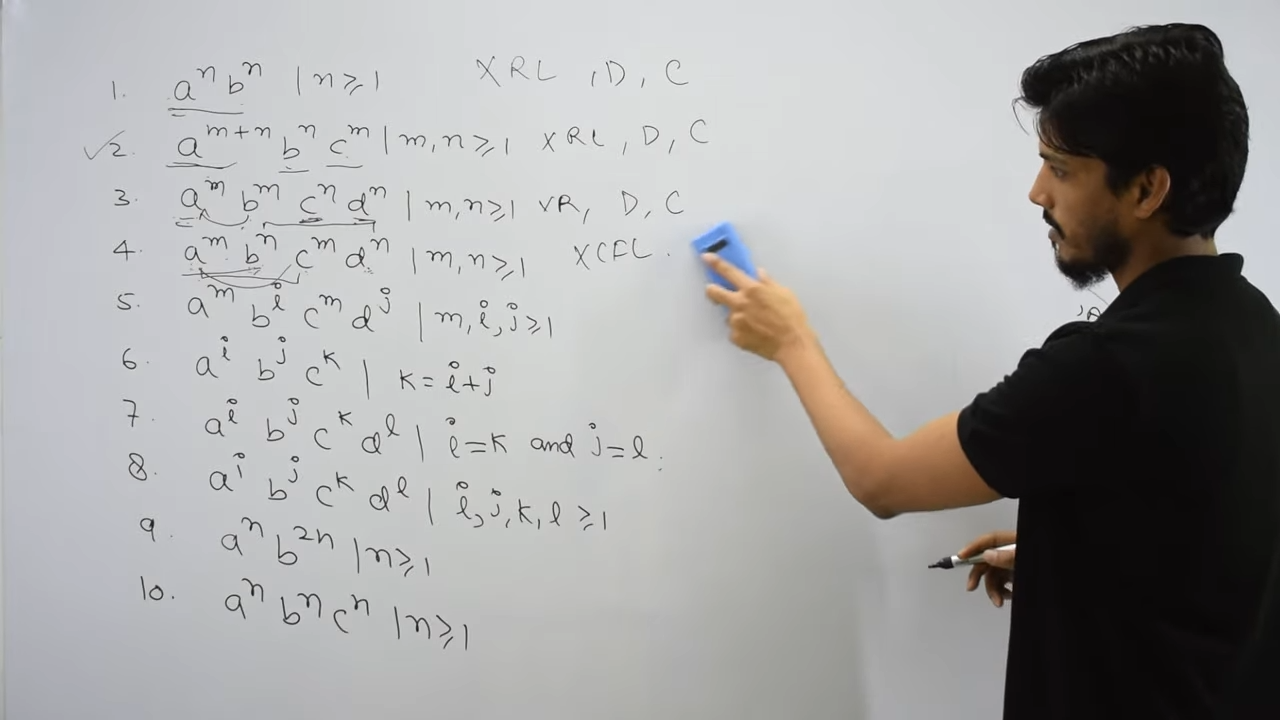 1. aⁿ bⁿ | n ≥ 1 X RL , D , C
✓ 2. aᵐ⁺ⁿ bⁿ cᵐ | m, n ≥ 1 X RL , D , C
3. aᵐ bᵐ cⁿ dⁿ | m, n ≥ 1 XR, D, C
4. aᵐ bⁿ cᵐ dⁿ | m, n ≥ 1 X CFL .
5. aᵐ bⁱ cᵐ dʲ | m, i, j ≥ 1
6. aⁱ bʲ cᵏ | k = i + j
7. aⁱ bʲ cᵏ dˡ | i = k and j = l .
8. aⁱ bʲ cᵏ dˡ | i, j, k, l ≥ 1
9. aⁿ b²ⁿ | n ≥ 1
10. aⁿ bⁿ cⁿ | n ≥ 1